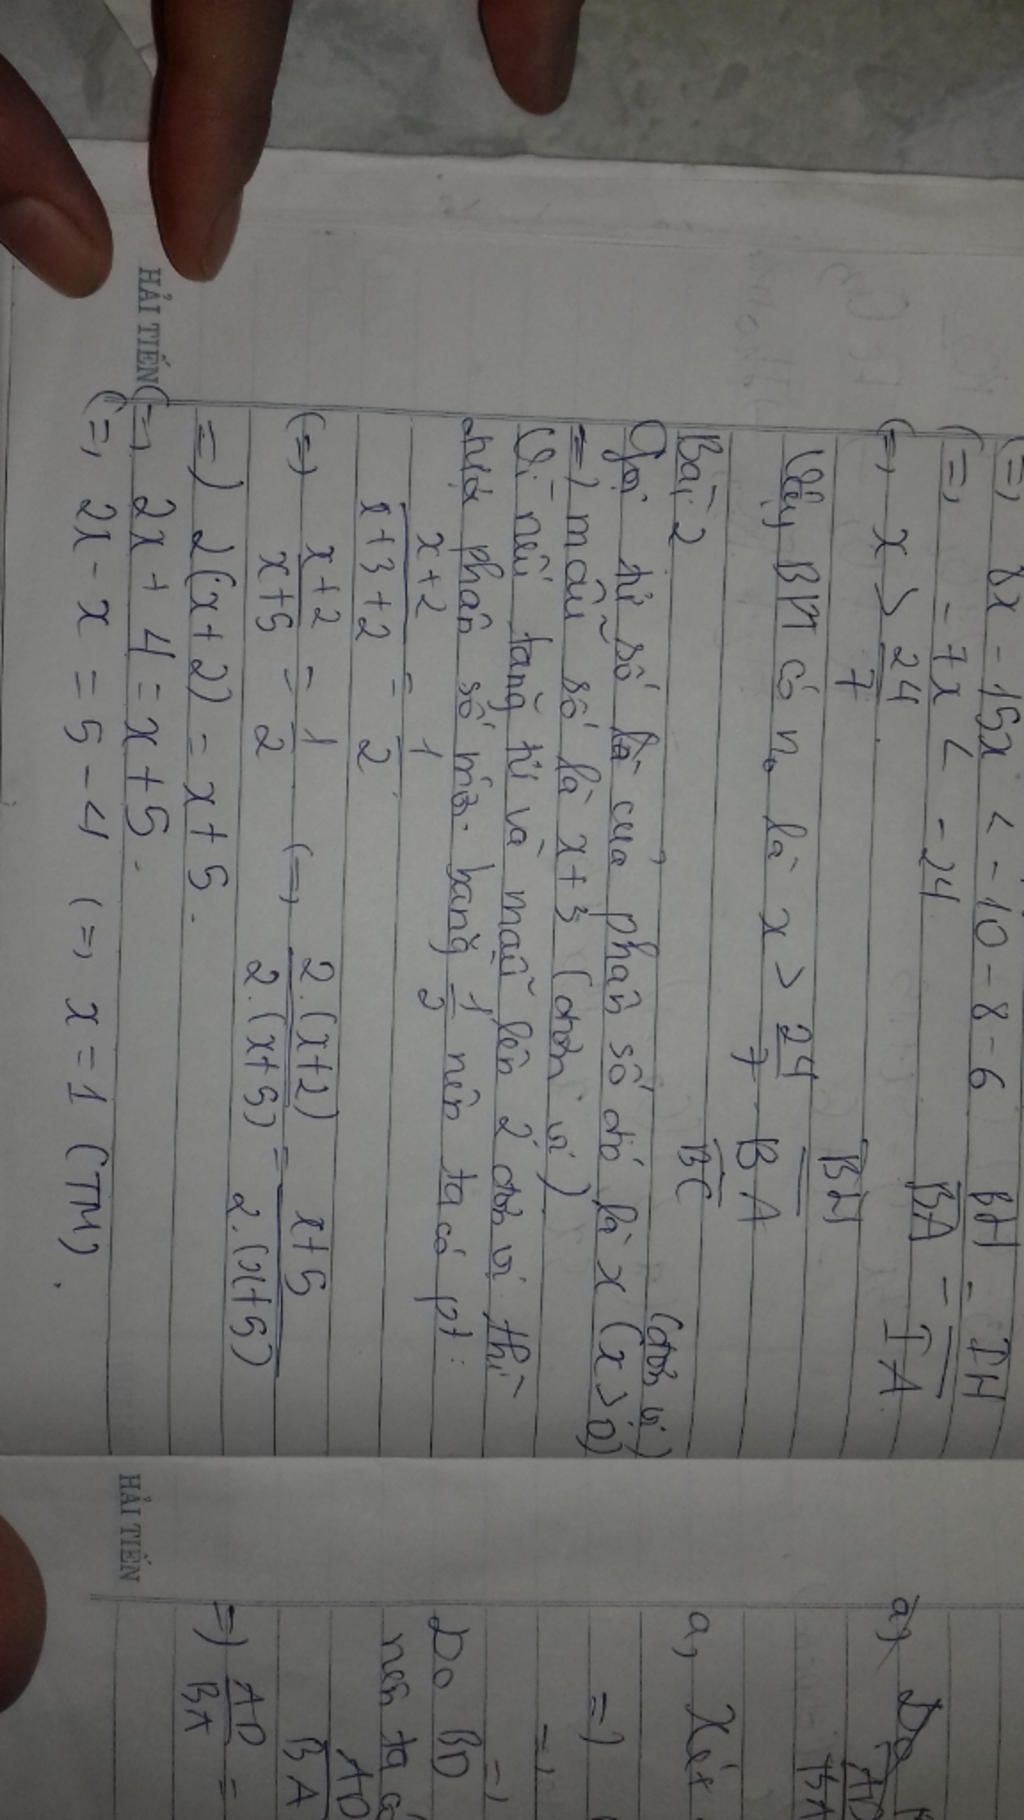 (=) 8x - 15x < -10 - 8 - 6
(=) -7x < -24
(=) x > 24/7
Vậy BPT có n₀ là x > 24/7
BH = IH
BA = IA
BH
BA
BC
Bài 2
Gọi tử số là của phân số đó là x (x > 0) (đơn vị)
=) mẫu số là x+3 (đơn vị)
Vì nếu tăng tử và mẫu lên 2 đơn vị thì
được phân số mới bằng 1/2 nên ta có pt:
x+2 / x+3+2 = 1/2
(=) x+2 / x+5 = 1/2 (=) 2.(x+2) / 2.(x+5) = x+5 / 2.(x+5)
=) 2(x+2) = x+5.
(=) 2x + 4 = x + 5.
(=) 2x - x = 5 - 4 (=) x = 1 (TM).
HẢI TIẾN
a,
AD
BA
a, Xét
=)
Do BD
nên ta có
AD
BA
=) AD/BA =
HẢI TIẾN